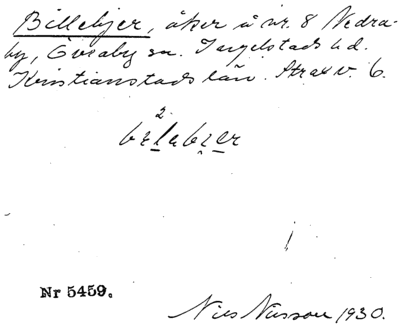 Billebjer, åker å nr. 8 Nedra-
by, Övraby sn. Ingelstads hd.
Kristianstads län. Strax v. 6.
2
Nr 5459.
Nils Nilsson 1930.